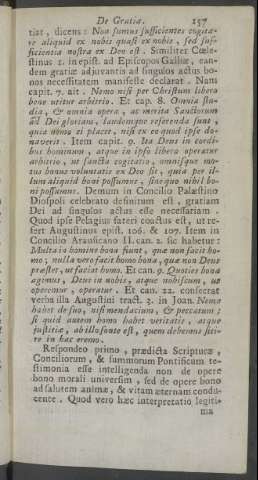 De Gratia. 157
tiat, dicens: Non sumus sufficientes cogita-
re aliquid ex nobis quasi ex nobis, sed suf-
ficientia nostra ex Deo est. Similiter Cœle-
stinus I. in epist. ad Episcopos Galliæ, ean-
dem gratiæ adjuvantis ad singulos actus bo-
nos necessitatem manifeste declarat. Nam
capit. 7. ait. Nemo nisi per Christum libero
bene utitur arbitrio. Et cap. 8. Omnia stu-
dia, & omnia opera, ac merita Sanctorum
ad Dei gloriam, laudemque referenda sunt,
quia nemo ei placet, nisi ex eo quod ipse do-
naverit. Item capit. 9. Ita Deus in cordi-
bus hominum, atque in ipso libero operatur
arbitrio, ut sancta cogitatio, omnisque mo-
tus bonus voluntatis ex Deo sit, quia per il-
lum aliquid boni possumus, sine quo nihil bo-
ni possumus. Demum in Concilio Palæstino
Diospoli celebrato definitum est, gratiam
Dei ad singulos actus esse necessariam.
Quod ipse Pelagius fateri coactus est, ut re-
fert Augustinus epist. 106. & 107. Item in
Concilio Arausicano II. can. 2. sic habetur:
Multa in homine bona fiunt, quæ non facit ho-
mo; nulla vero facit homo bona, quæ non Deus
præstet, ut faciat homo. Et can. 9. Quoties bona
agimus, Deus in nobis, atque nobiscum, ut
operemur, operatur. Et can. 22. consecrat
verba illa Augustini tract. 5. in Joan. Nemo
habet de suo, nisi mendacium, & peccatum;
si quid autem homo habet veritatis, atque
justitiæ, ab illo fonte est, quem debemus siti-
re in hac eremo.
Respondeo primo, prædicta Scripturæ,
Conciliorum, & summorum Pontificum te-
stimonia esse intelligenda non de opere
bono morali universim, sed de opere bono
ad salutem animæ, & vitam æternam condu-
cente. Quod vero hæc interpretatio legiti-
ma